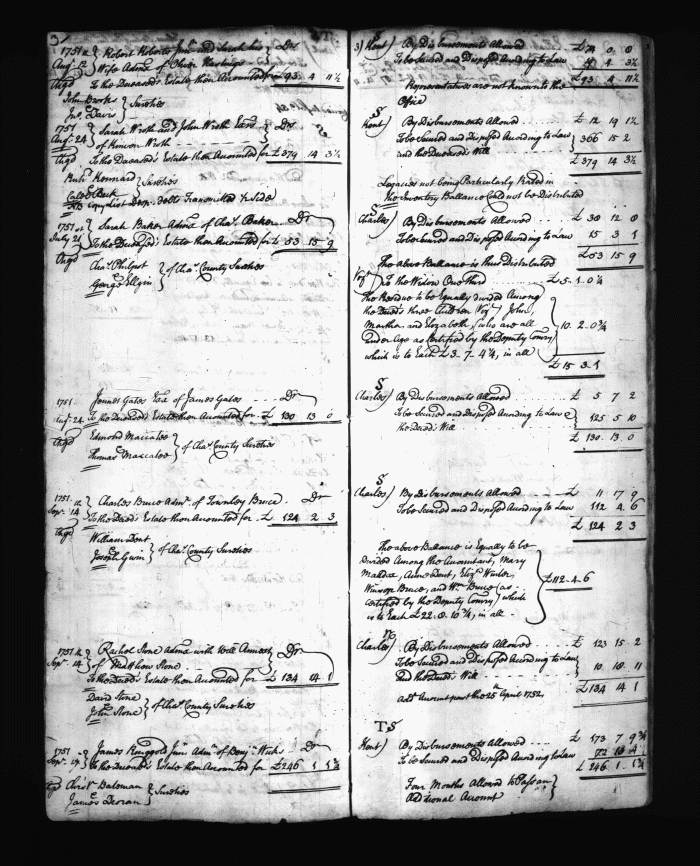 3
1751 Robert Roberts Junr and Sarah his } Dr
Augt 12 Wife Admx of Hastings
To the Deceased's Estate then Accounted for £ 93 4 11½
John Brooks } Sureties
Jno. Davis
1751 Sarah Wroth and John Wroth Exrs } Dr
Augt 24 of Kinvin Wroth
To the Deceased's Estate then Accounted for £ 379 14 3½
Kennard } Sureties
1751 Sarah Baker Admx of Chas. Baker Dr
July 21 To the Deceased's Estate then Accounted for £ 53 15 9
Chas. Philpot } of Chas. County Sureties
George Elgin
1751 Gates Exx of James Gates Dr
Augt 24 To the Deceased's Estate then Accounted for £ 130 13 0
Edmond Maccatee } of Chas. County Sureties
Thomas Maccatee
1751 Charles Bruce Admr. of Townley Bruce Dr
Sepr. 14 To the Deceds Estate then Accounted for £ 124 2 3
William Dent } of Chas. County Sureties
Joseph Gwin
1751 Rachel Stone Admx with Will Annexed } Dr
Sepr. 14 of Matthew Stone
To the Deceds Estate then Accounted for £ 134 14 1
David Stone } of Chas. County Sureties
John Stone
1751 James Ringgold Junr Admr. of Benjn. Dr
Sepr. 17 To the Deceased's Estate then Accounted for £ 246 1 1¾
Christr Bateman } Sureties
James
3) Kent) By Disbursements Allowed £ 74 0 8
To be Secured and Disposed According to Law 19 4 3½
£ 93 4 11½
Representatives are not known to this
Office
S
Kent) By Disbursements Allowed £ 12 19 1½
To be Secured and Disposed According to Law } 366 15 2
and the Deceased's Will
£ 379 14 3½
Legacies not being Particularly Rated in
the Inventory Ballance Could not be Distributed
S
Charles) By Disbursements Allowed £ 38 12 8
To be Secured and Disposed According to Law 15 3 1
£ 53 15 9
The above Ballance is thus Distributed
Vizt) To the Widow One Third £ 5. 1. 0¼
the Residue to be Equally divided Among
the Deceds three Children Vizt) John,
Martha and Elizabeth, (who are all
under Age as Certified by the Deputy Comry) 10. 2. 0¾
which is to Each £ 3. 7. 4¼, in all
£ 15 3 1
S
Charles) By Disbursements Allowed £ 5 7 2
To be Secured and Disposed According to Law & } 125 5 10
the Deceds Will
£ 130. 13. 0
S
Charles) By Disbursements Allowed £ 11 17 9
To be Secured and Disposed According to Law 112 4 6
£ 124 2 3
The above Ballance is Equally to be
divided Among the Accountant, Mary
Maddox, Ann Dent, Elizth Winter,
Bruce, and Wm. Bruce (as } £ 112. 4. 6
Certified by the Deputy Comry) which
is to Each £ 22. 8. 10¾, in all
Charles) By Disbursements Allowed £ 123 15 2
To be Secured and Disposed According to Law } 10 18 11
and the Deceds Will
£ 134 14 1
addl. Account past the 25th April 1752
TS
Kent) By Disbursements Allowed £ 173 7 9¾
To be Secured and Disposed According to Law 72 13 4
£ 246 1 1¾
Four Months Allowed to Pass an }
Additional Account